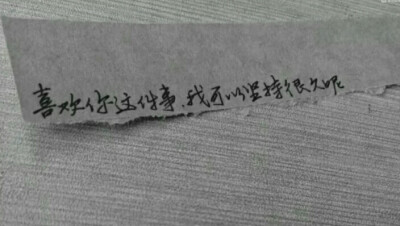 喜欢你这件事,我可以坚持很久呢